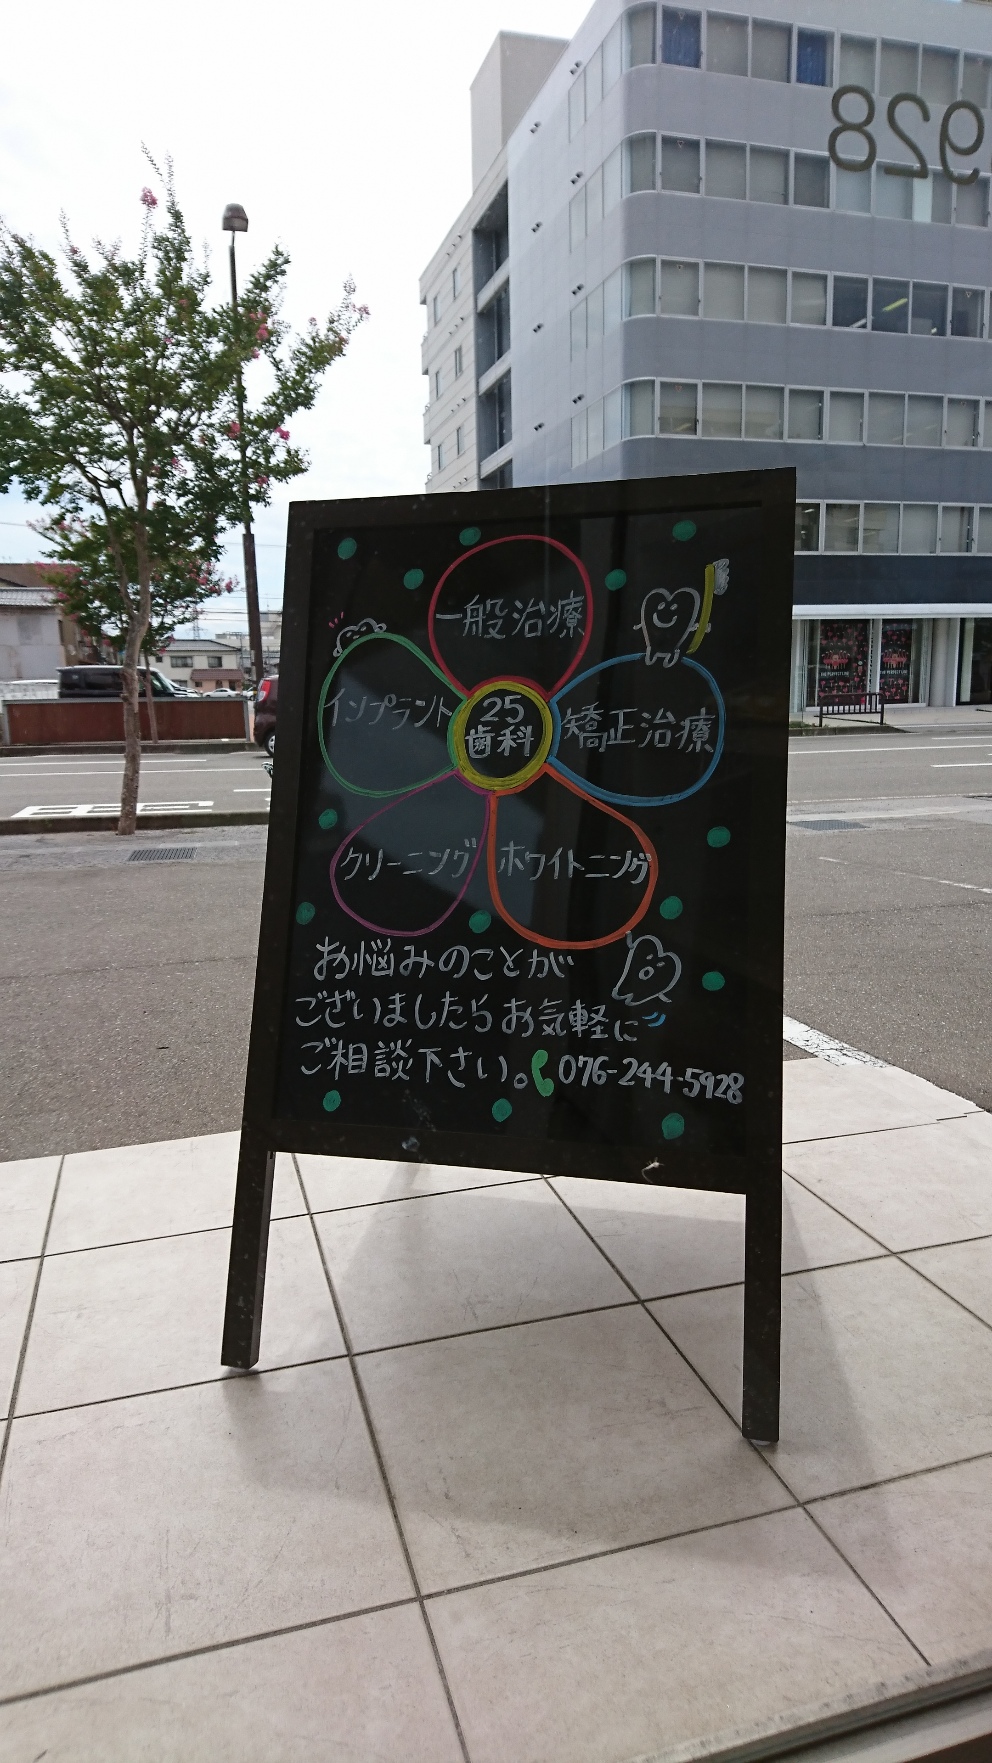 928
一般治療
インプラント
25
歯科
矯正治療
クリーニング
ホワイトニング
お悩みのことが
ございましたらお気軽に
ご相談下さい。076-244-5928